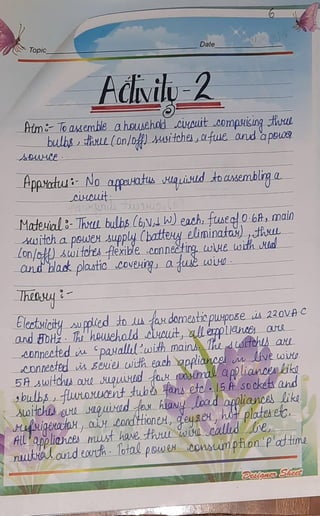 6
Topic
Date
Activity-2
Aim:- To assemble a household circuit comprising three
bulbs, three (on/off) switches, a fuse and a power
source.
Appratus:- No apparatus required to assembling a
circuit
Material:- Three bulbs (6V, 1 W) each, fuse of 0.6A, main
switch a power supply (battery eliminator), three
(on/off) switches flexible connecting wire with red
and black plastic covering, a fuse wire.
Theory:-
Electricity supplied to us for domestic purpose is 220V AC
and 50Hz. The household circuit, all appliances are
connected in "parallel" with mains. The switches are
connected in series with each appliance in live wire
5A switches are required for normal appliances like
bulbs, flurorescent tubes fans etc. 15A sockets and
switches are required for heavy load appliances like
refrigerator, air conditioner, geyser, hot plates etc.
All appliances must have three wire called live,
neutral and earth. Total power consumption 'P' at time
Designer Sheet